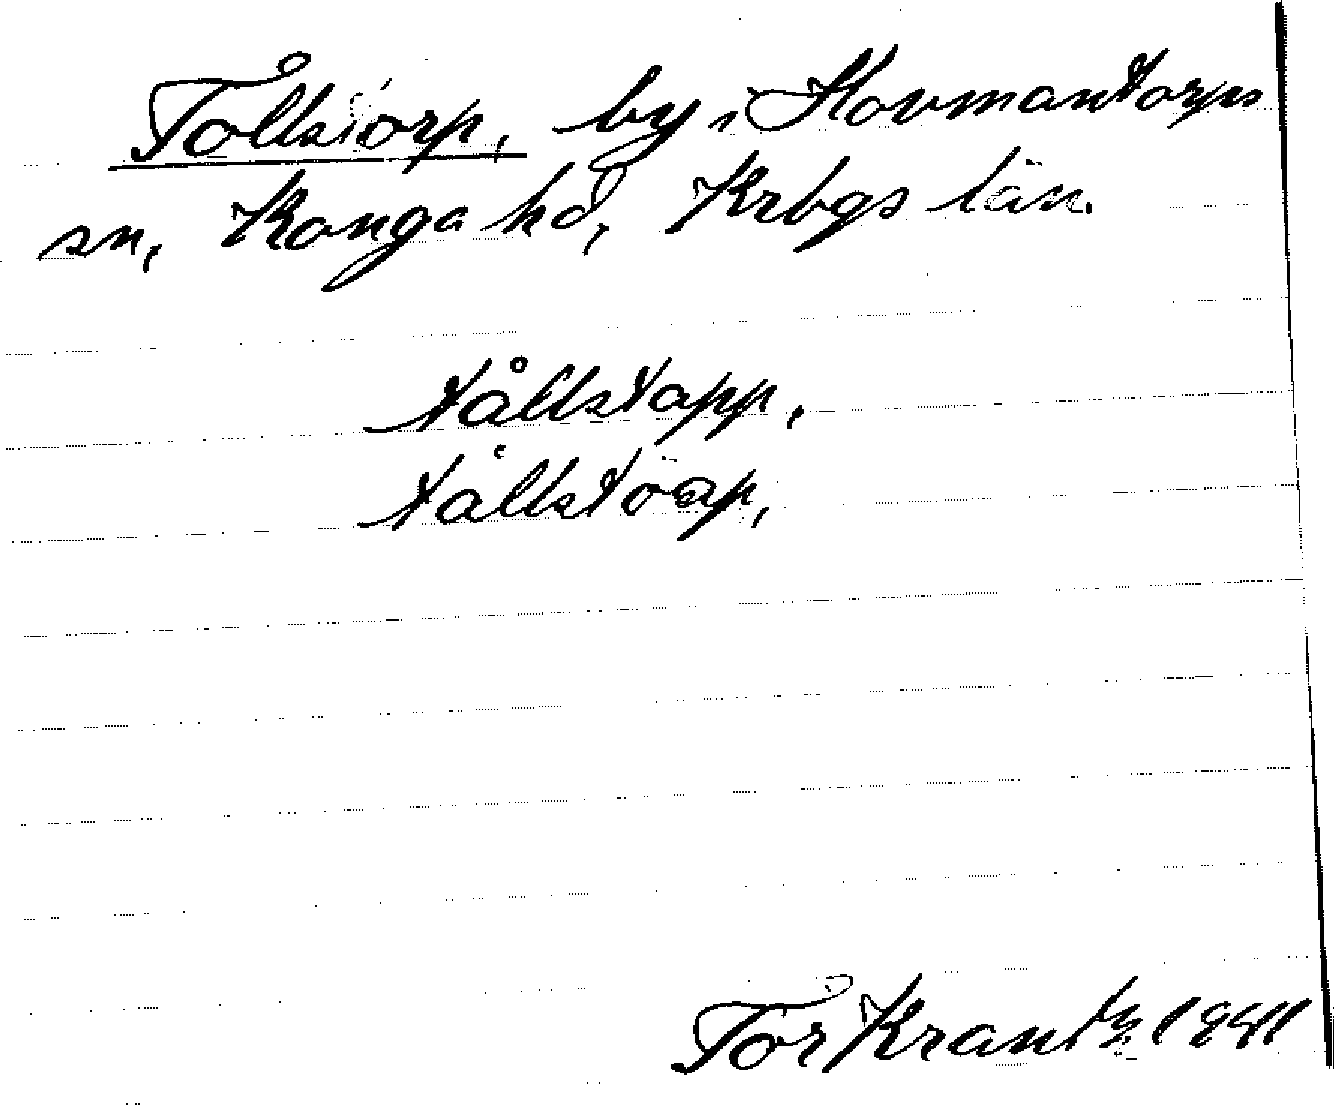 Tollstorp, by i Hovmantorps
sn, Konga hd, Krbgs län.
tållstapp,
tållstoap,
Tor Krantz 1941